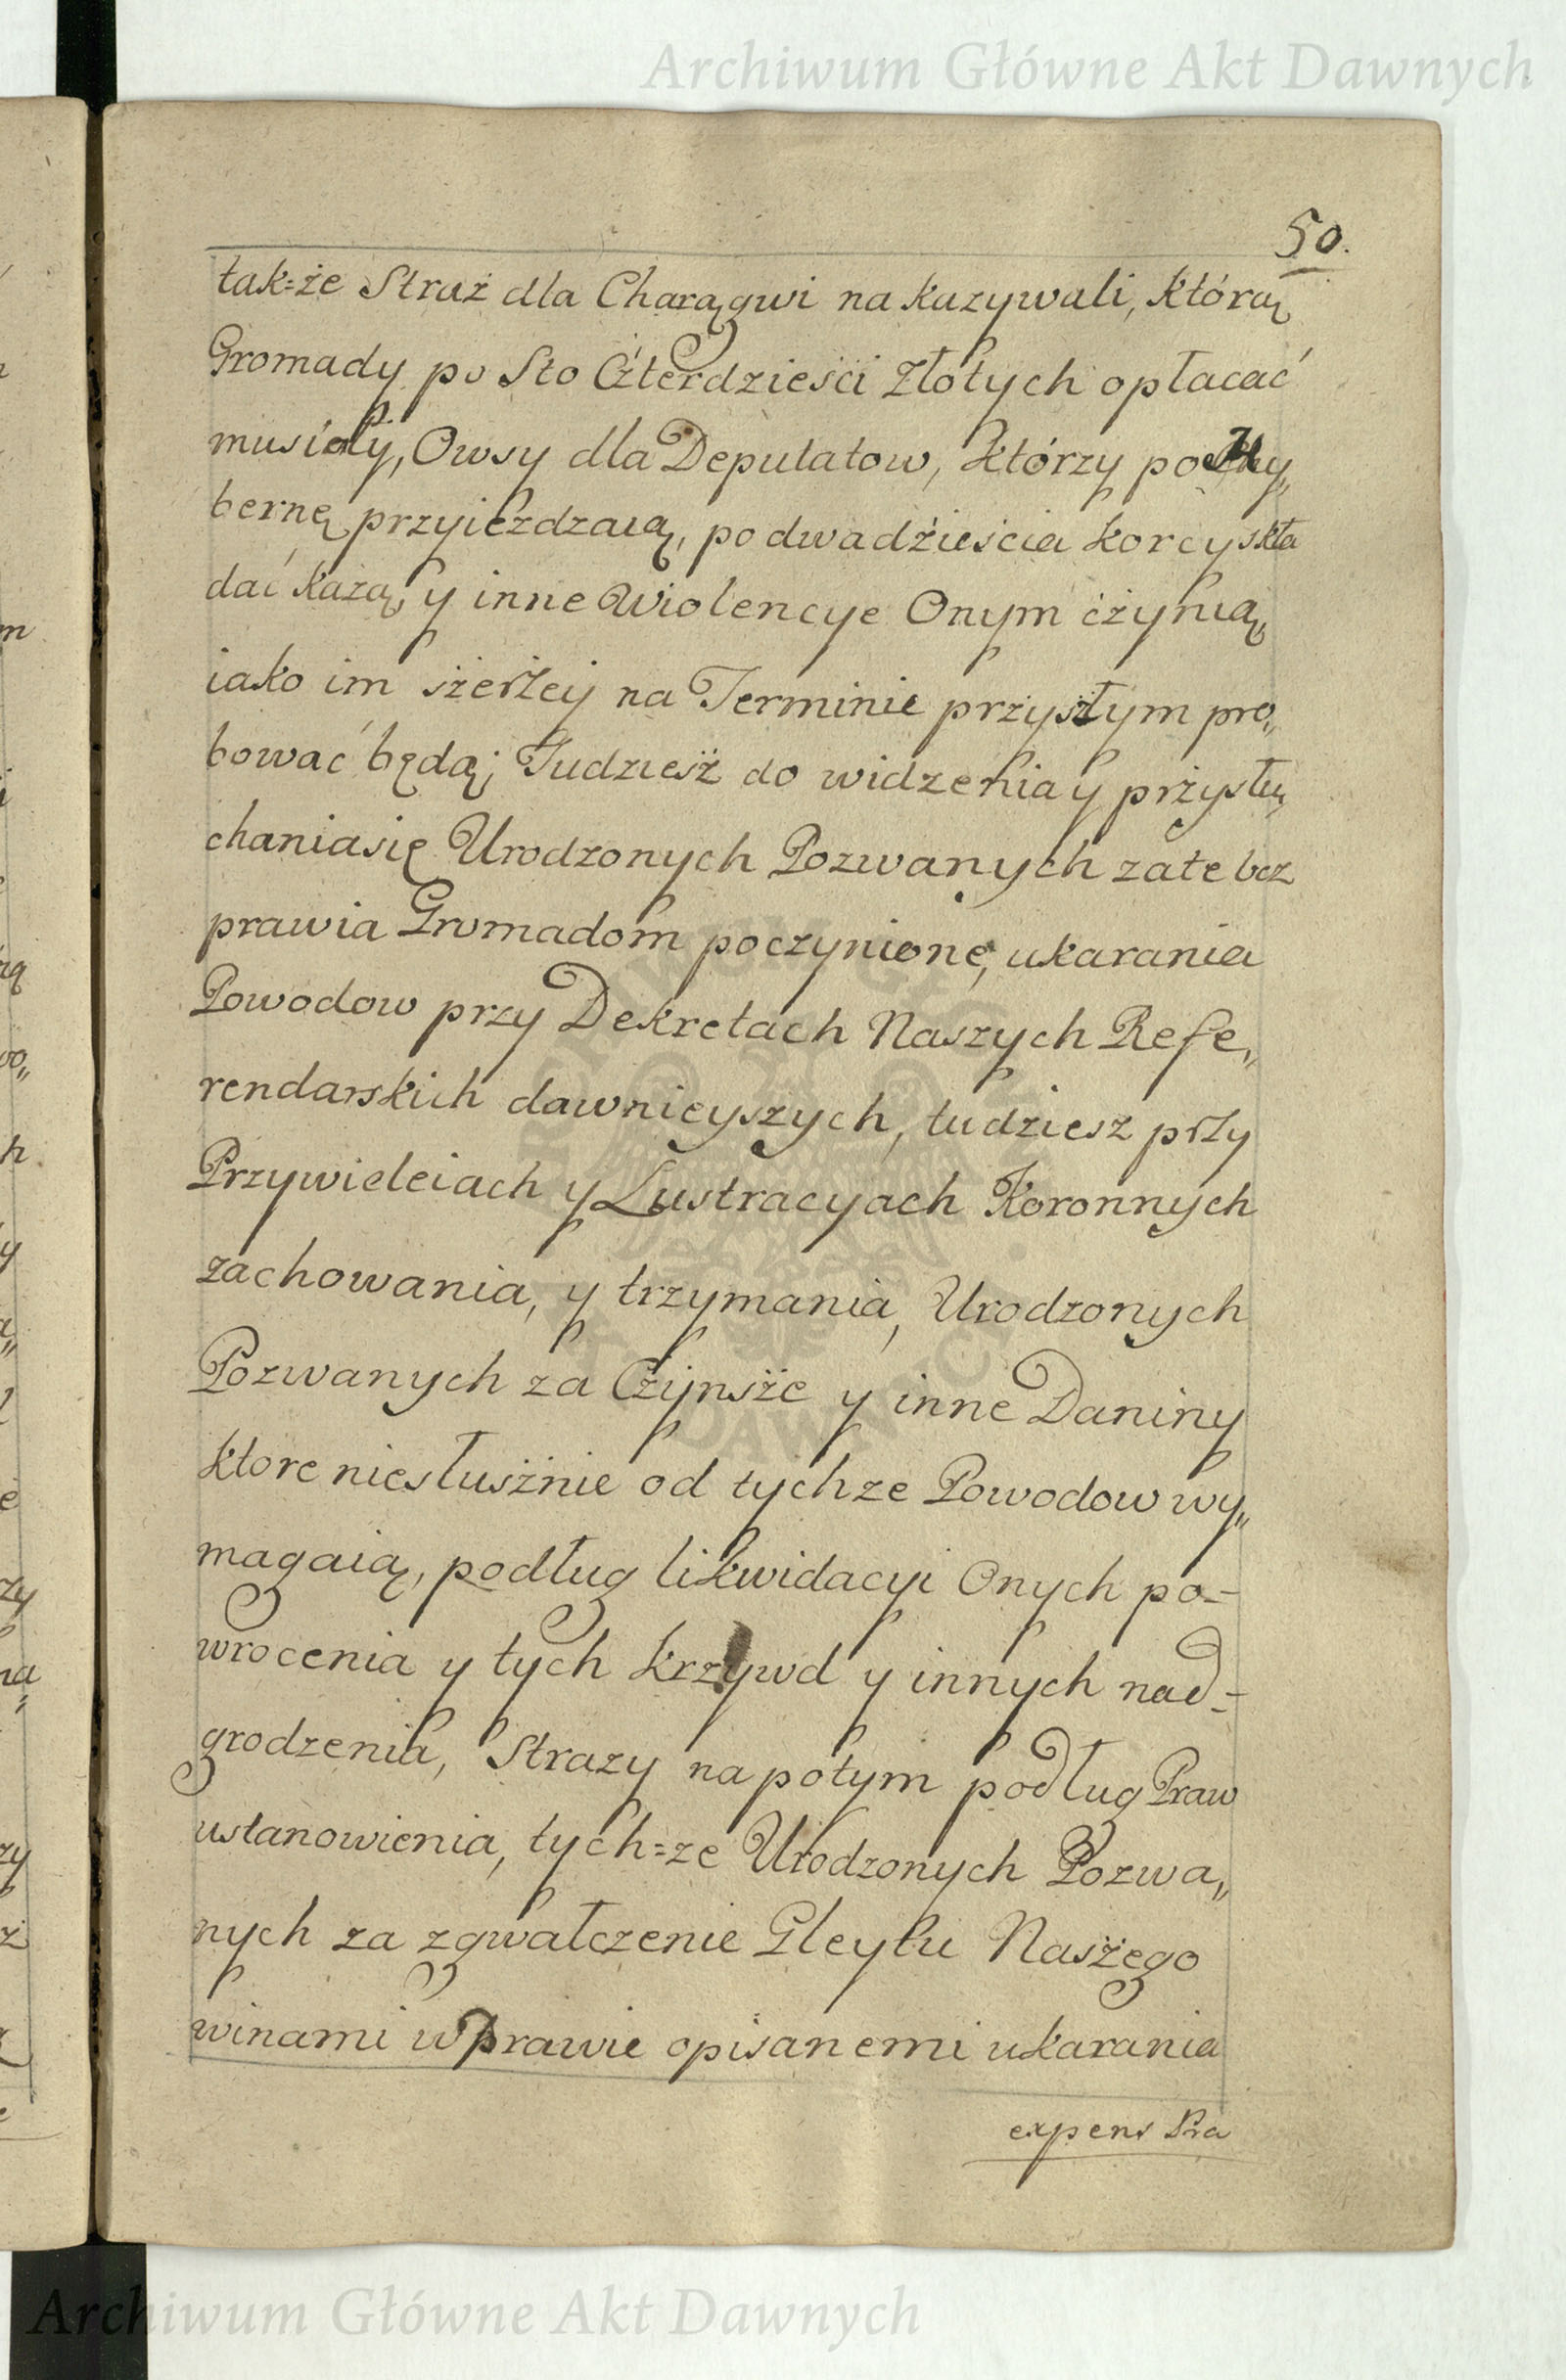 Archiwum Główne Akt Dawnych
50.
tak=że Straż dla Charągwi nakazywali, którą
Gromady po Sto Czterdzieści Złotych opłacać
musiały, Owsy dla Deputatow, którzy po Hy„
bernę przyieżdzaią, po dwadzieścia korcy skła
dać każą, y inne Wiolencye Onym czynią,
iako im szerzey na Terminie przyszłym pro„
bować będą; Tudziesz do widzenia y przysłu„
chania się Urodzonych Pozwanych za te bez
prawia Gromadom poczynione, ukarania
Powodow przy Dekretach Naszych Refe„
rendarskich dawnieyszych, tudziesz przy
Przywileiach y Lustracyach Koronnych
zachowania, y trzymania, Urodzonych
Pozwanych za Czynsze y inne Daniny
ktore niesłusznie od tychze Powodow wy„
magaią, podług likwidacyi Onych po-
wrocenia y tych krzywd y innych nad-
grodzenia, Strazy napotym podług Praw
ustanowienia, tych=ze Urodzonych Pozwa„
nych za zgwałczenie Gleytu Naszego
winami w Prawie opisanemi ukarania
expens Pra
Archiwum Główne Akt Dawnych